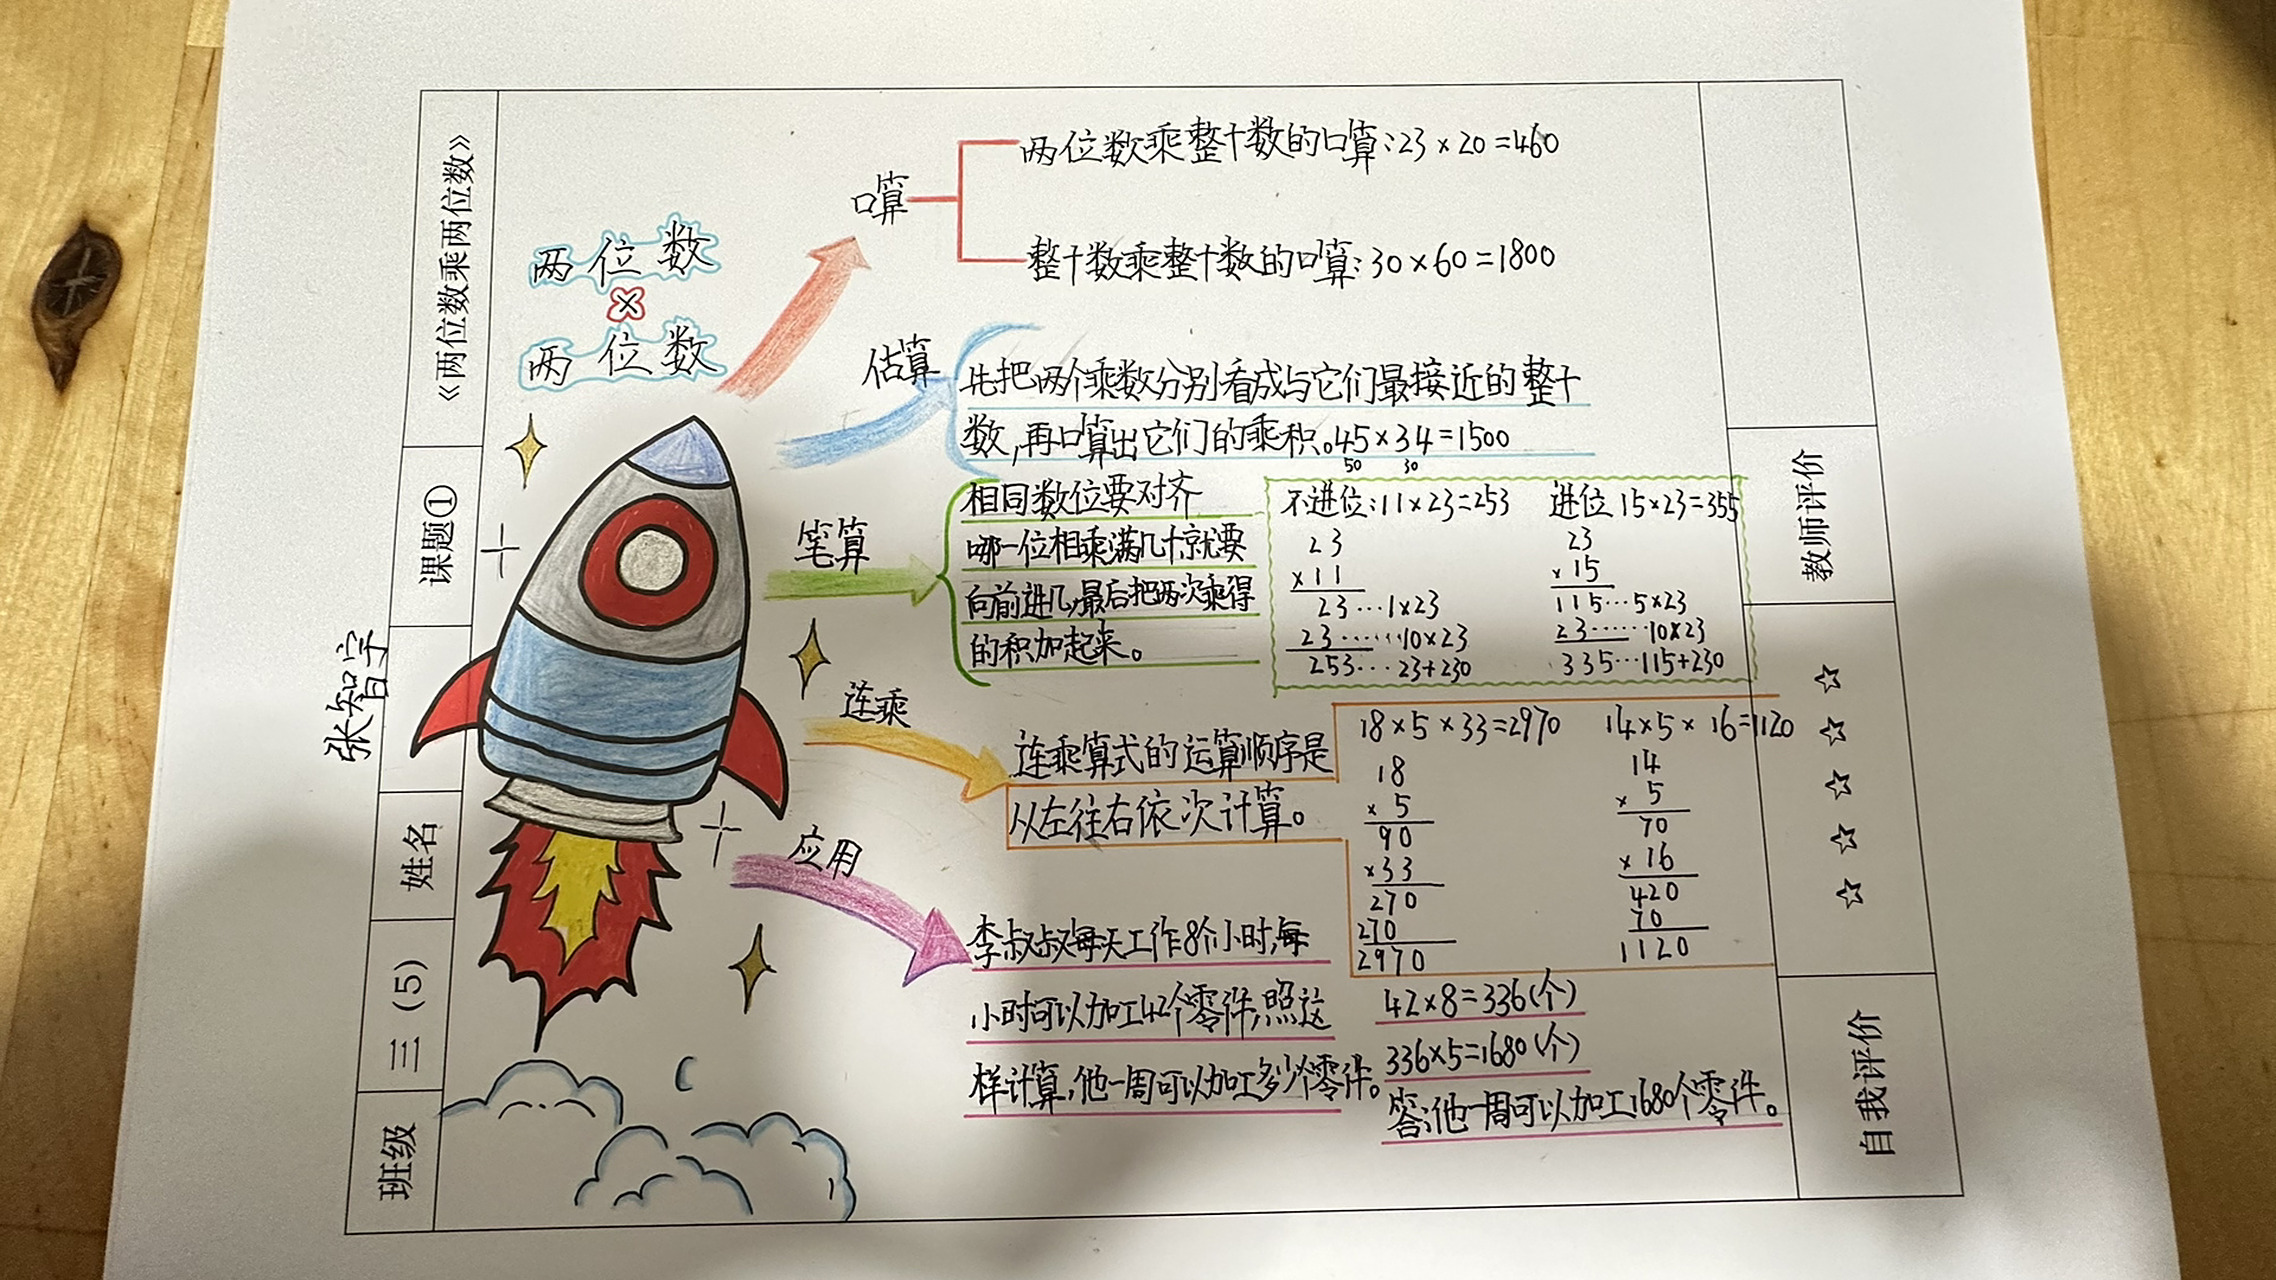 《两位数乘两位数》
课题①
张智宇
姓名
三(5)
班级
两位数
×
两位数
口算
两位数乘整十数的口算:23×20=460
整十数乘整十数的口算:30×60=1800
估算
先把两个乘数分别看成与它们最接近的整十
数,再口算出它们的乘积。45×34=1500
50 30
笔算
相同数位要对齐
哪一位相乘满几十就要
向前进几,最后把两次乘得
的积加起来。
不进位:11×23=253
23
×11
23…1×23
23……10×23
253…23+230
进位 15×23=355
23
×15
115…5×23
23……10×23
335…115+230
连乘
连乘算式的运算顺序是
从左往右依次计算。
18×5×33=2970
18
×5
90
×33
270
270
2970
14×5×16=1120
14
×5
70
×16
420
70
1120
应用
李叔叔每天工作8个小时,每
小时可以加工42个零件,照这
样计算,他一周可以加工多少个零件。
42×8=336(个)
336×5=1680(个)
答:他一周可以加工1680个零件。
教师评价
☆☆☆☆☆
自我评价